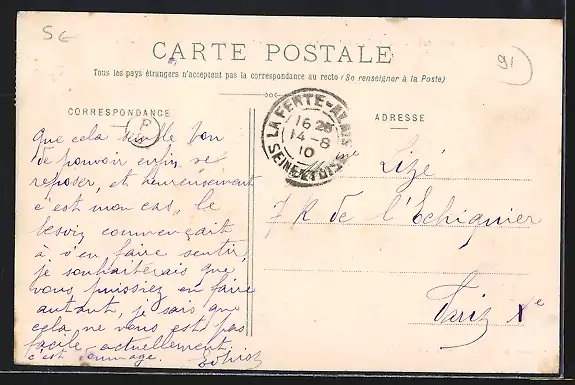 SE
91
CARTE POSTALE
Tous les pays étrangers n'acceptent pas la correspondance au recto (Se renseigner à la Poste)
CORRESPONDANCE
ADRESSE
LA FERTE-ALAIS
16 25
14-8
10
SEINE-ET-OISE
P
que cela semble bon
de pouvoir enfin se
reposer, et heureusement
c'est mon cas, le
besoin commençait
à s'en faire sentir,
je souhaiterais que
vous puissiez en faire
autant, je sais que
cela ne vous est pas
facile actuellement,
c'est dommage.
Lizé
7 R de l'Echiquier
Paris Xe